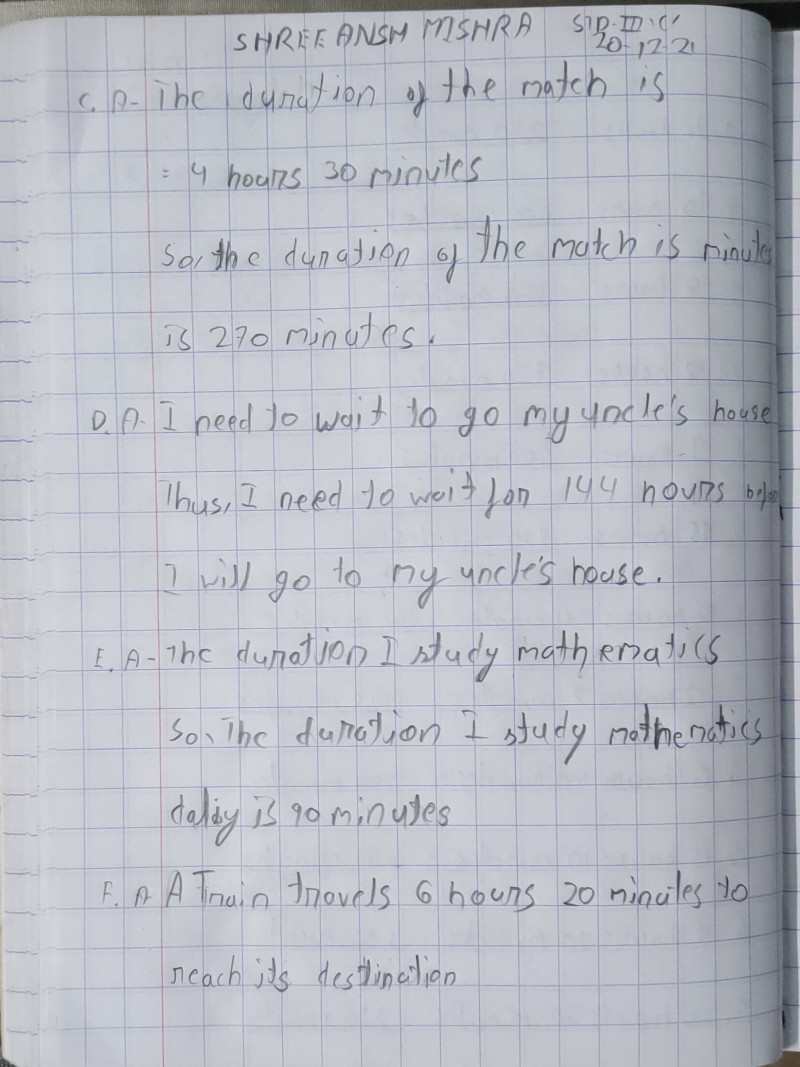 SHREEANSH MSHRA STD-III 'C'
20-12-21
C. A- The duration of the match is
= 4 hours 30 minutes
So, the duration of the match is minutes
is 270 minutes.
D. A- I need to wait to go my uncle's house
Thus, I need to wait for 144 hours before
I will go to my uncle's house.
E. A- The duration I study mathematics
So, The duration I study mathematics
daliy is 90 minutes
F. A- A Train travels 6 hours 20 minutes to
reach its destination